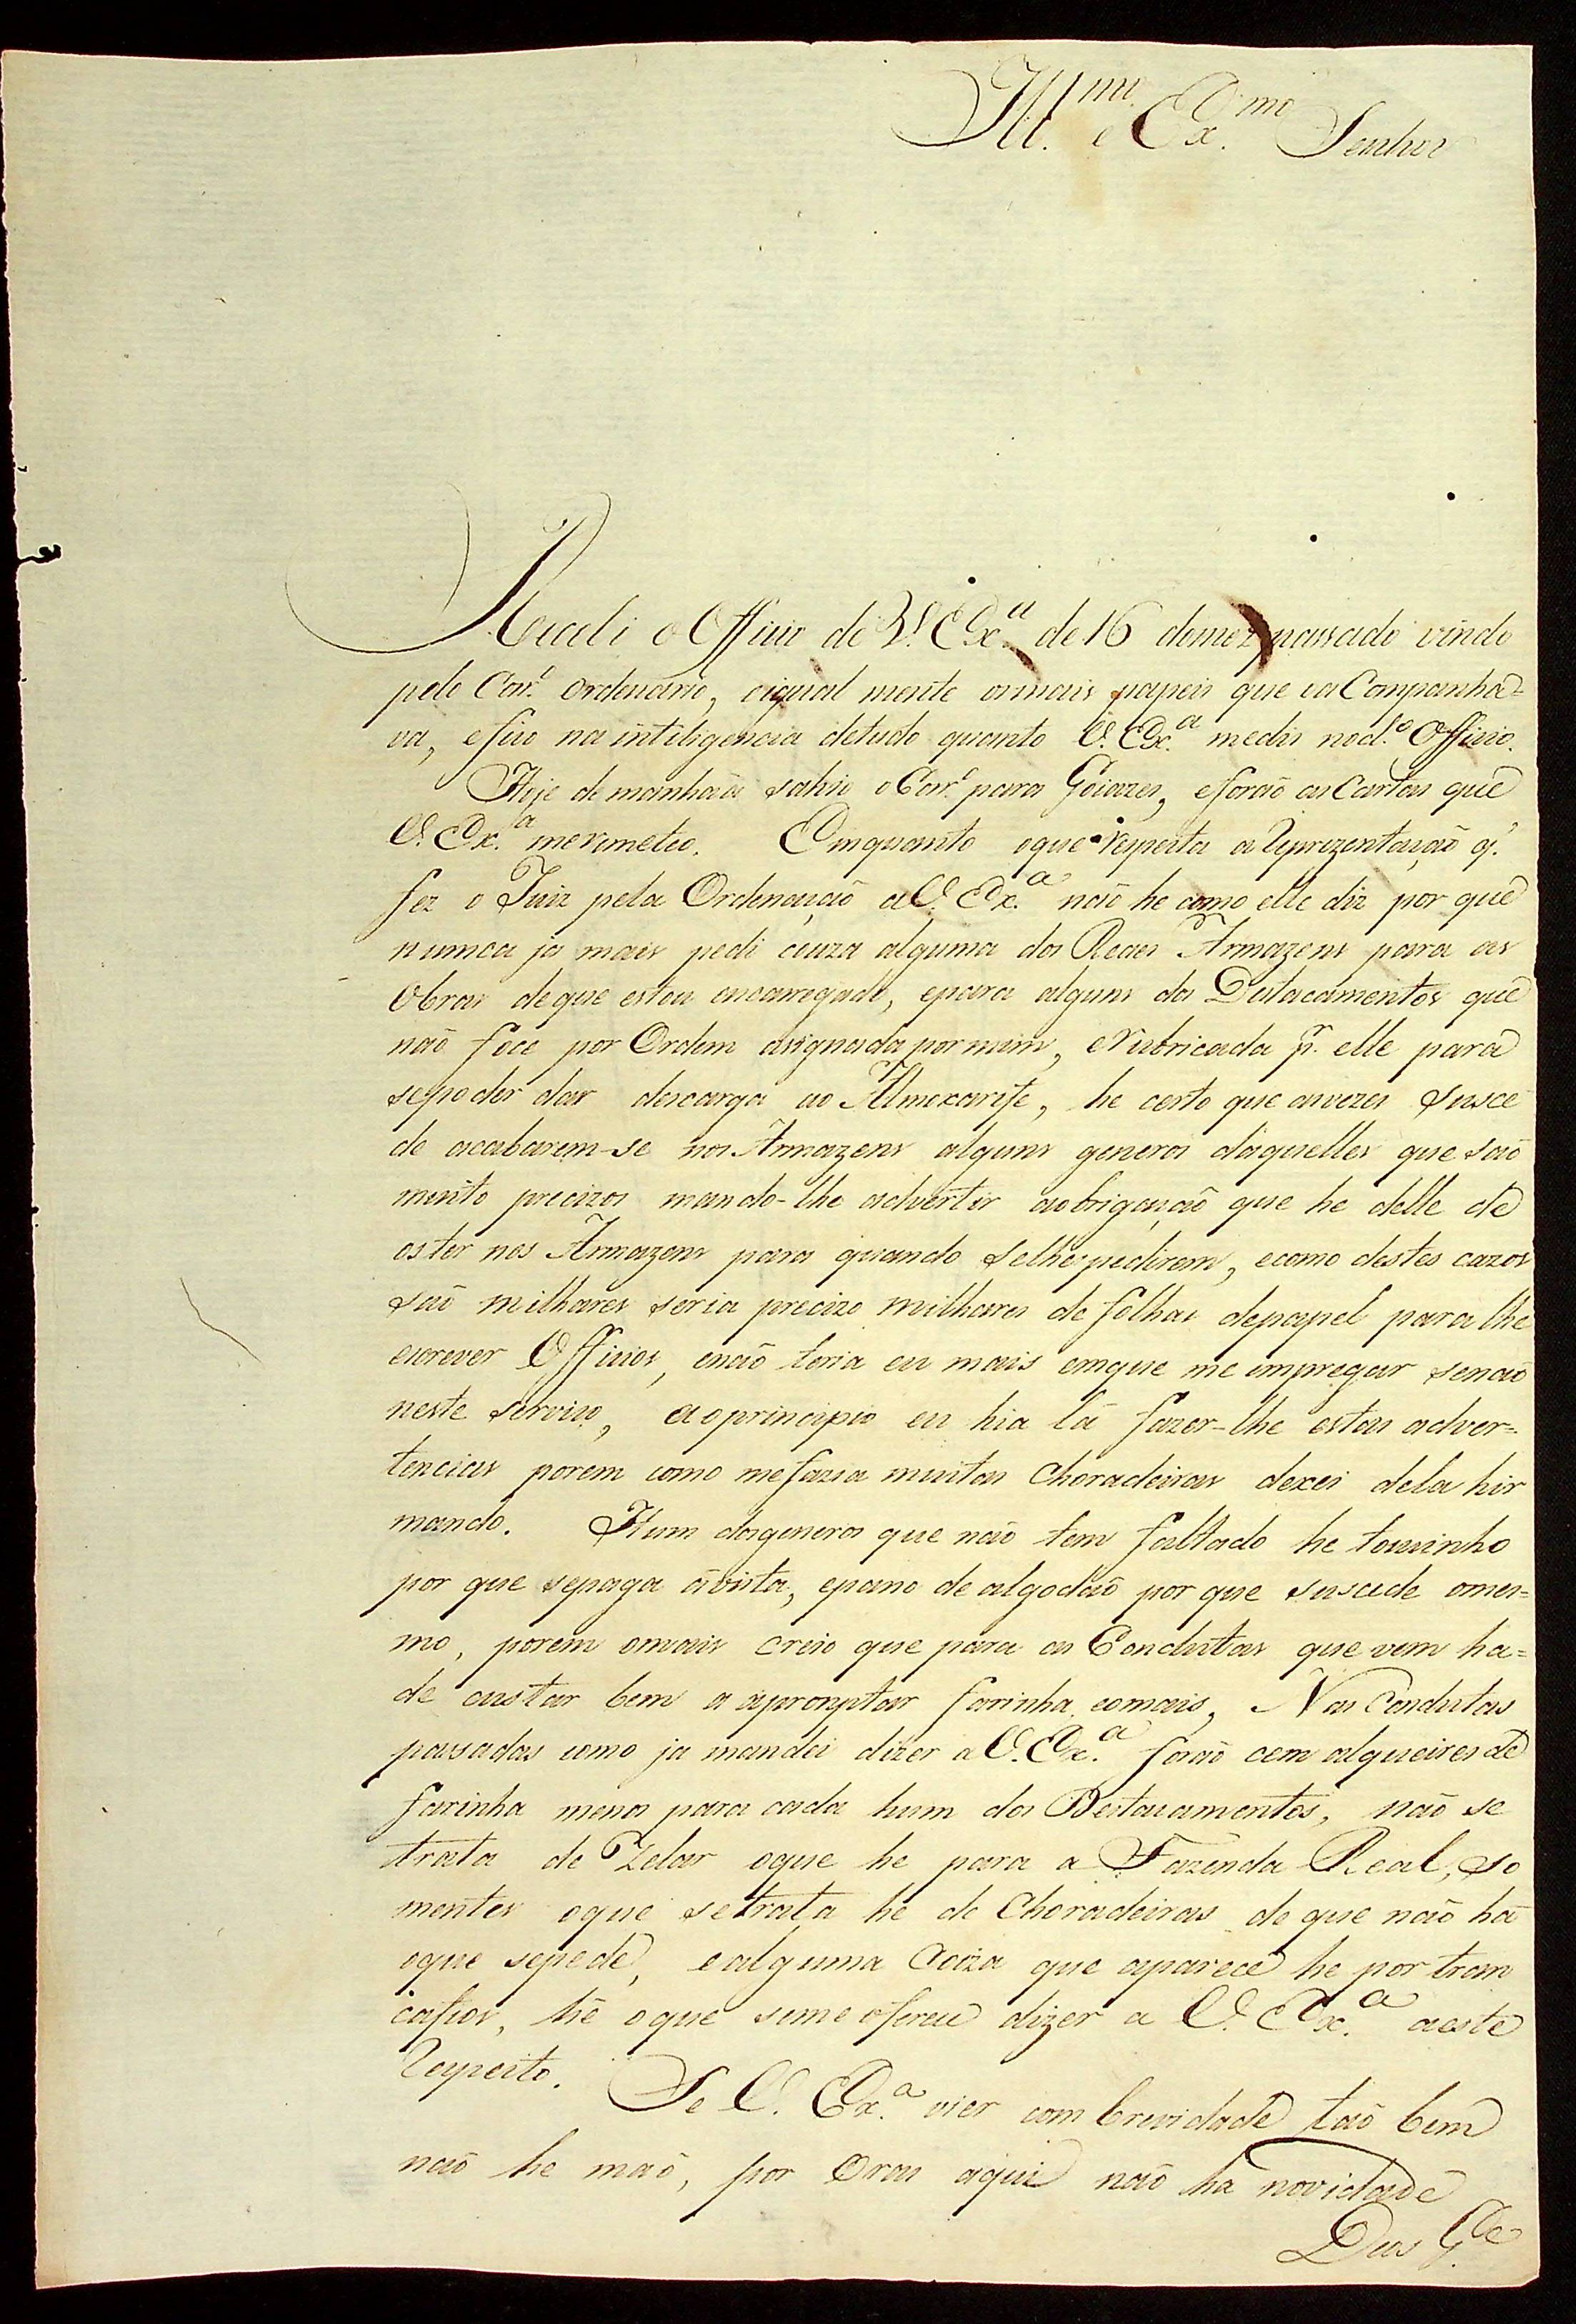 Ill.mo e Ex.mo Senhor
Recebi o Officio de V. Ex.a de 16 domez passado vindo
pelo Corr.o Ordenario, eigual mente osmais papeis que oaCompanha=
va, efico na intiligencia detudo quanto V. Ex.a mediz nod.o Officio.
Hoje demanhaã sahio o Corr.o para Goiazes, eforaõ as Cartas que
V. Ex.a meremeteo. Emquanto oque respeita a reprezentaçaõ q.'
fez o Juiz pela Ordenaçaõ a V. Ex.a naõ he como elle diz por que
numca ja mais pedi couza alguma dos Reaes Armazens para as
Obras deque estou encarregado, epara alguns dos Destacamentos que
naõ foce por Ordem asignada por mim, eRubricada p.r elle para
sepoder dar descarga ao Almoxarife, he certo que asvezes susce
de acabarem-se nos Armazens alguns generos daquelles que saõ
muito precizos mando-lhe advertir aobrigaçaõ que he delle de
oster nos Armazens para quando selhepedirem, ecomo destes cazos
saõ milhares seria precizo milhares de folhas depapel para lhe
escrever Officios, enaõ teria eu mais emque me empregar senaõ
neste serviço, aoprincipio eu hia lá fazer-lhe estas adver=
tencias porem como mefazia muitas Choradeiras dexei dela hir
mando. Hum dosgeneros que naõ tem faltado he toucinho
por que sepaga ávista, epano de algodaõ por que suscede omes=
mo, porem omais creio que para as Condutas que vem ha=
de custar bem a apromptar farinha, eomais, Nas Condutas
pasadas como ja mandei dizer a V. Ex.a foraõ cem alqueires de
farinha menos para cada hum dos Destacamentos, naõ se
trata de Zelar oque he para a Fazenda Real, so
mentes oque setrata he de Choradeiras de que naõ há
oque sepede, ealguma Coiza que aparece he por tram
cafios, hé oque seme oferece dizer a V. Ex.a aeste
respeito. Se V. Ex.a vier com brevidade taõ bem
naõ he maõ, por Oras aqui naõ ha novidade
Deos G.de